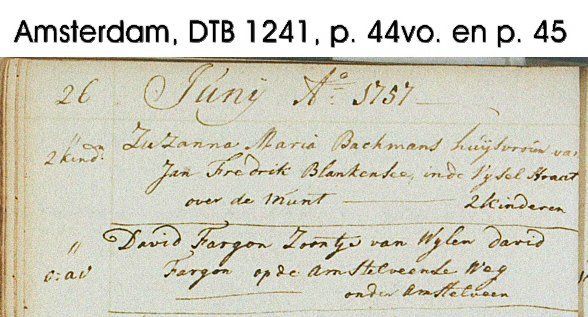 Amsterdam, DTB 1241, p. 44vo. en p. 45
26 Junij Ao 1757
Zuzanna Maria Bachmans huijsvrouw va
2 kindn Jan Fredrik Blankensee, in de Ijsel straat
over de Munt 2 kinderen
" David Fargon Zoontje van Wylen david
o: av Fargon op de Amstelveense Weg
onder Amstelveen